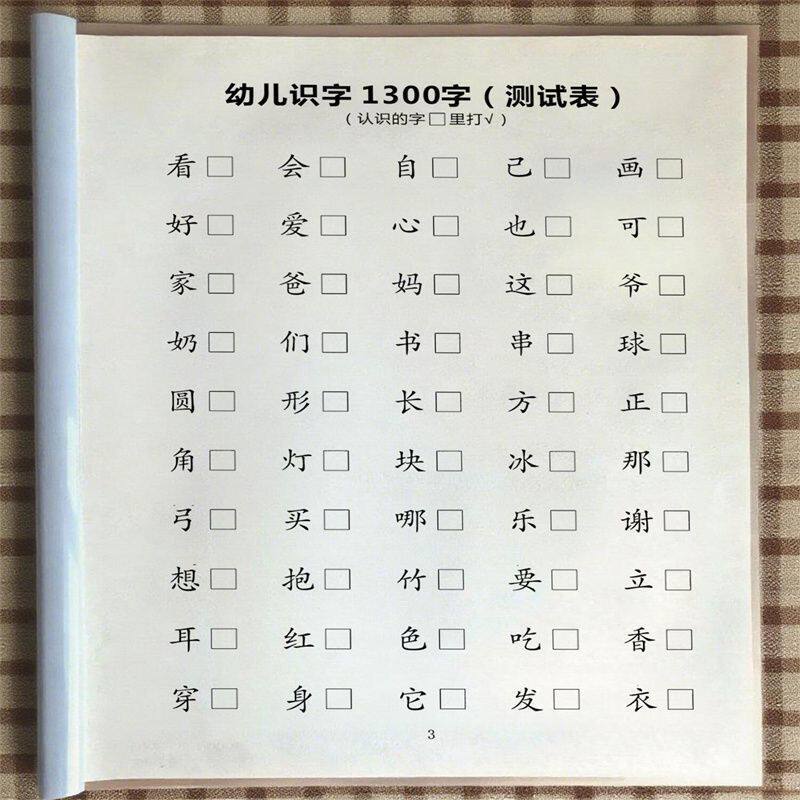 幼儿识字 1300字（测试表）
（认识的字□里打√）
看□ 会□ 自□ 己□ 画□
好□ 爱□ 心□ 也□ 可□
家□ 爸□ 妈□ 这□ 爷□
奶□ 们□ 书□ 串□ 球□
圆□ 形□ 长□ 方□ 正□
角□ 灯□ 块□ 冰□ 那□
弓□ 买□ 哪□ 乐□ 谢□
想□ 抱□ 竹□ 要□ 立□
耳□ 红□ 色□ 吃□ 香□
穿□ 身□ 它□ 发□ 衣□
3